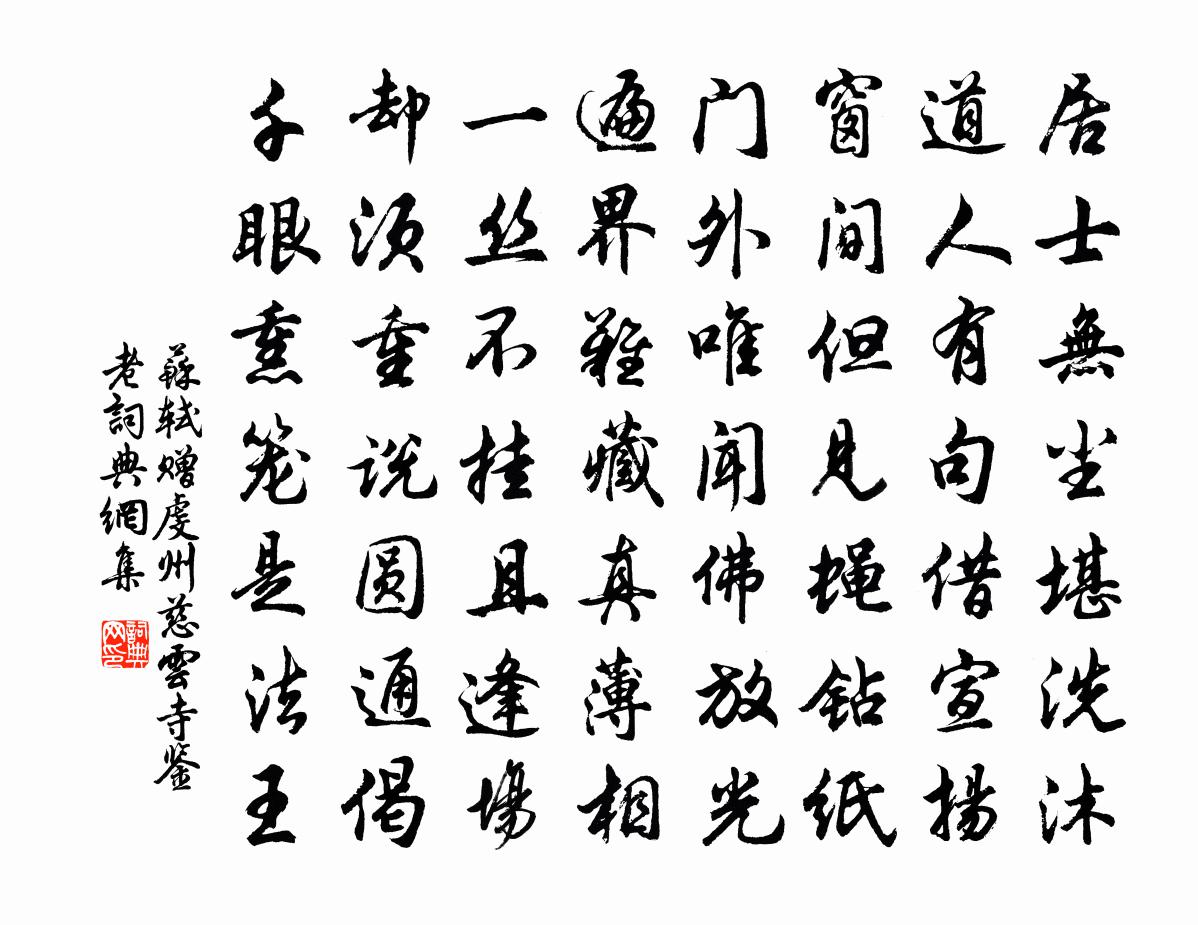 居士無尘堪洗沐
道人有句借宣揚
窗间但见蝇钻纸
门外唯闻佛放光
遍界難藏真薄相
一丝不挂且逢場
却须重说圆通偈
千眼熏笼是法王
蘇轼赠虔州慈雲寺鉴
老詞典網集
詞典网印